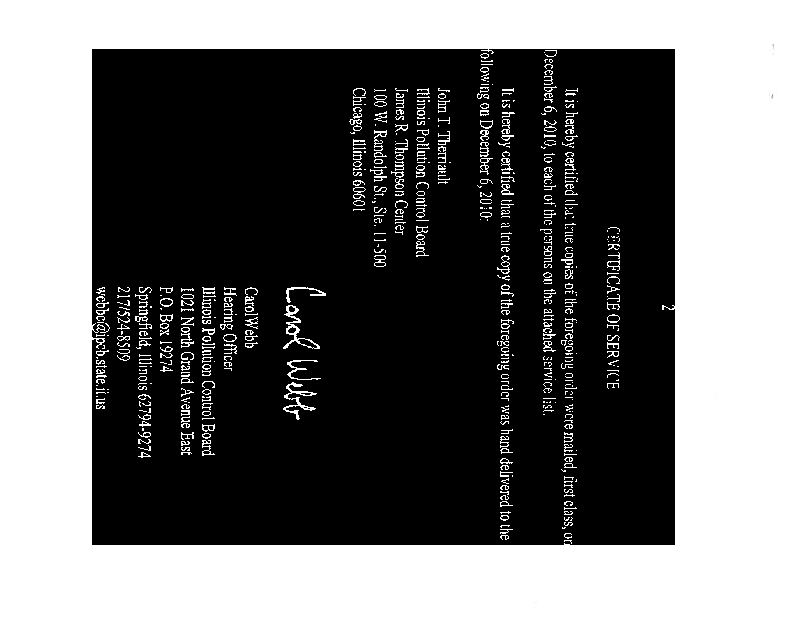 2
CERTIFICATE OF SERVICE
It is hereby certified that true copies of the foregoing order were mailed, first class, on
December 6, 2010, to each of the persons on the attached service list.
It is hereby certified that a true copy of the foregoing order was hand delivered to the
following on December 6, 2010:
John T. Therriault
Illinois Pollution Control Board
James R. Thompson Center
100 W. Randolph St., Ste. 11-500
Chicago, Illinois 60601
Carol Webb
Carol Webb
Hearing Officer
Illinois Pollution Control Board
1021 North Grand Avenue East
P.O. Box 19274
Springfield, Illinois 62794-9274
217/524-8509
webbc@ipcb.state.il.us